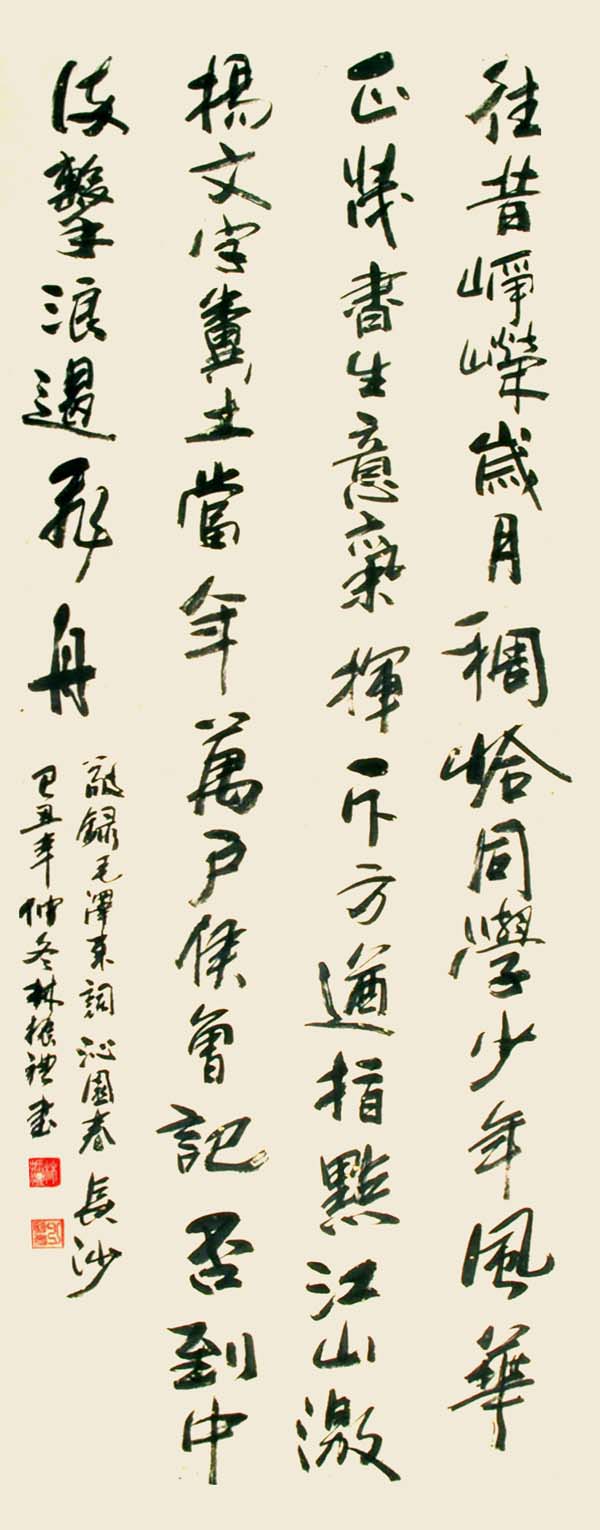 往昔崢嶸歲月稠恰同學少年風華
正茂書生意氣揮斥方遒指點江山激
揚文字糞土當年萬戶侯曾記否到中
流擊浪遏飛舟
敬錄毛澤東詞沁園春長沙
己丑年仲冬林振禮書